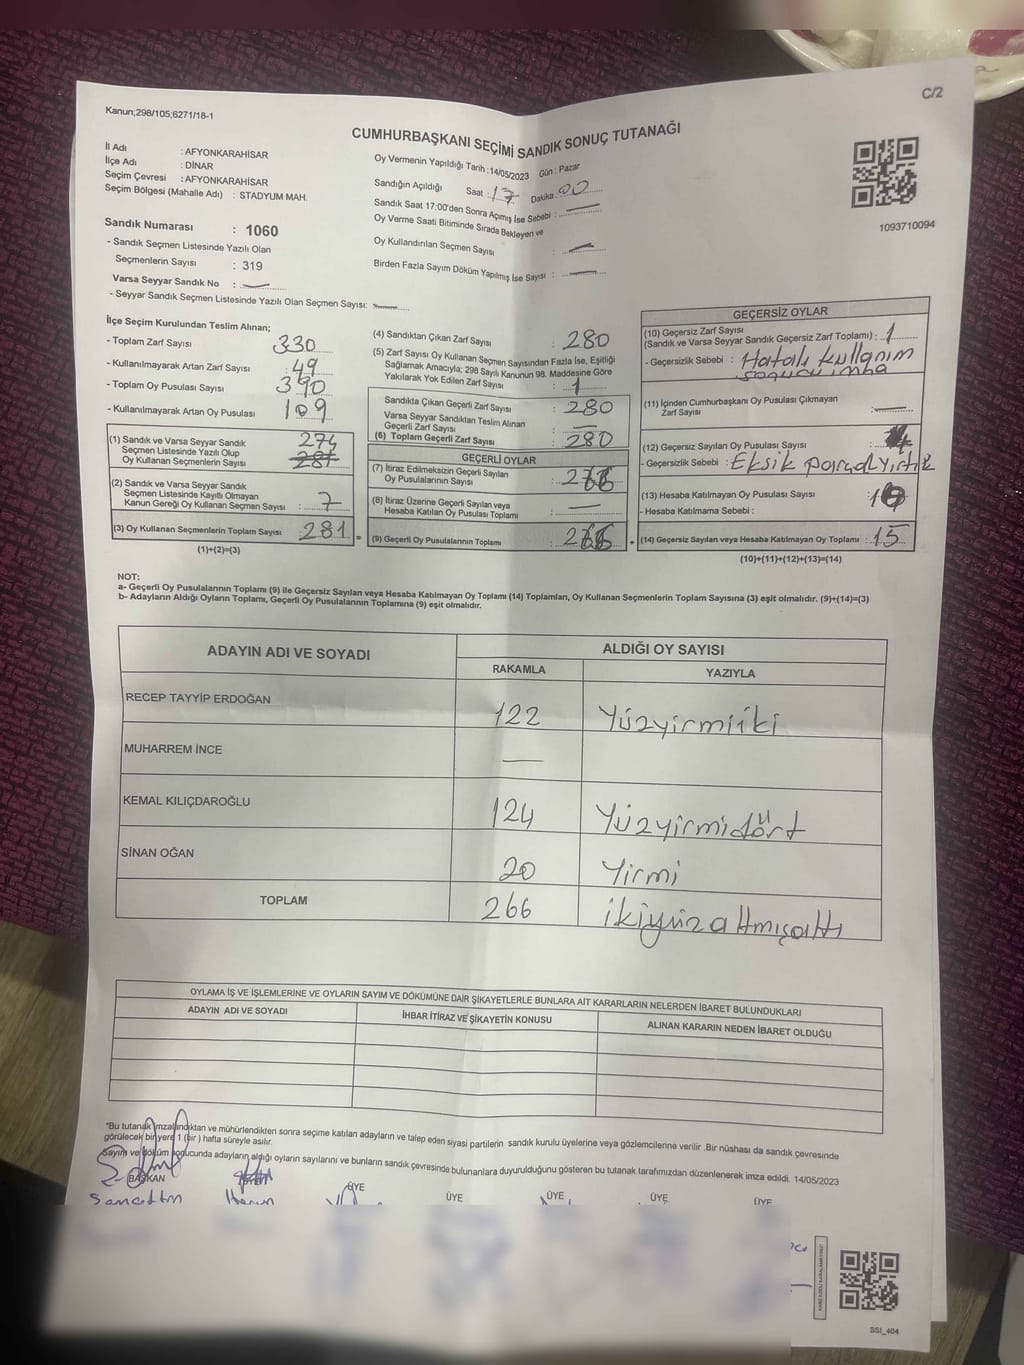 C/2
Kanun;298/105;6271/18-1
CUMHURBAŞKANI SEÇİMİ SANDIK SONUÇ TUTANAĞI
İl Adı : AFYONKARAHİSAR
İlçe Adı : DİNAR
Seçim Çevresi : AFYONKARAHİSAR
Seçim Bölgesi (Mahalle Adı) : STADYUM MAH.
Oy Vermenin Yapıldığı Tarih :14/05/2023 Gün : Pazar
Sandığın Açıldığı Saat : 17 Dakika : 00
Sandık Saat 17:00'den Sonra Açımış İse Sebebi : —
Oy Verme Saati Bitiminde Sırada Bekleyen ve
Oy Kullandırılan Seçmen Sayısı : —
Birden Fazla Sayım Döküm Yapılmış İse Sayısı : —
1093710094
Sandık Numarası : 1060
- Sandık Seçmen Listesinde Yazılı Olan
Seçmenlerin Sayısı : 319
Varsa Seyyar Sandık No : —
- Seyyar Sandık Seçmen Listesinde Yazılı Olan Seçmen Sayısı: —
İlçe Seçim Kurulundan Teslim Alınan;
- Toplam Zarf Sayısı : 330
- Kullanılmayarak Artan Zarf Sayısı : 49
- Toplam Oy Pusulası Sayısı : 390
- Kullanılmayarak Artan Oy Pusulası : 109
(1) Sandık ve Varsa Seyyar Sandık
Seçmen Listesinde Yazılı Olup
Oy Kullanan Seçmenlerin Sayısı : 274
(2) Sandık ve Varsa Seyyar Sandık
Seçmen Listesinde Kayıtlı Olmayan
Kanun Gereği Oy Kullanan Seçmen Sayısı : 7
(3) Oy Kullanan Seçmenlerin Toplam Sayısı : 281
(1)+(2)=(3)
(4) Sandıktan Çıkan Zarf Sayısı : 280
(5) Zarf Sayısı Oy Kullanan Seçmen Sayısından Fazla İse, Eşitliği
Sağlamak Amacıyla; 298 Sayılı Kanunun 98. Maddesine Göre
Yakılarak Yok Edilen Zarf Sayısı : 1
Sandıkta Çıkan Geçerli Zarf Sayısı : 280
Varsa Seyyar Sandıktan Teslim Alınan
Geçerli Zarf Sayısı : —
(6) Toplam Geçerli Zarf Sayısı : 280
GEÇERLİ OYLAR
(7) İtiraz Edilmeksizin Geçerli Sayılan
Oy Pusulalarının Sayısı :
(8) İtiraz Üzerine Geçerli Sayılan veya
Hesaba Katılan Oy Pusulası Toplamı : —
(9) Geçerli Oy Pusulalarının Toplamı :
GEÇERSİZ OYLAR
(10) Geçersiz Zarf Sayısı
(Sandık ve Varsa Seyyar Sandık Geçersiz Zarf Toplamı) : 1
- Geçersizlik Sebebi : Hatalı kullanım
sonucu imha
(11) İçinden Cumhurbaşkanı Oy Pusulası Çıkmayan
Zarf Sayısı : —
(12) Geçersiz Sayılan Oy Pusulası Sayısı :
- Geçersizlik Sebebi : Eksik
(13) Hesaba Katılmayan Oy Pusulası Sayısı :
- Hesaba Katılmama Sebebi :
(14) Geçersiz Sayılan veya Hesaba Katılmayan Oy Toplamı : 15
(10)+(11)+(12)+(13)=(14)
NOT:
a- Geçerli Oy Pusulalarının Toplamı (9) ile Geçersiz Sayılan veya Hesaba Katılmayan Oy Toplamı (14) Toplamları, Oy Kullanan Seçmenlerin Toplam Sayısına (3) eşit olmalıdır. (9)+(14)=(3)
b- Adayların Aldığı Oyların Toplamı, Geçerli Oy Pusulalarının Toplamına (9) eşit olmalıdır.
ADAYIN ADI VE SOYADI ALDIĞI OY SAYISI
RAKAMLA YAZIYLA
RECEP TAYYİP ERDOĞAN 122 Yüzyirmiiki
MUHARREM İNCE —
KEMAL KILIÇDAROĞLU 124 Yüzyirmidört
SİNAN OĞAN 20 Yirmi
TOPLAM 266 ikiyüzaltmışaltı
OYLAMA İŞ VE İŞLEMLERİNE VE OYLARIN SAYIM VE DÖKÜMÜNE DAİR ŞİKAYETLERLE BUNLARA AİT KARARLARIN NELERDEN İBARET BULUNDUKLARI
ADAYIN ADI VE SOYADI İHBAR İTİRAZ VE ŞİKAYETİN KONUSU ALINAN KARARIN NEDEN İBARET OLDUĞU
"Bu tutanak imzalandıktan ve mühürlendikten sonra seçime katılan adayların ve talep eden siyasi partilerin sandık kurulu üyelerine veya gözlemcilerine verilir .Bir nüshası da sandık çevresinde
görülecek bir yere 1 (bir ) hafta süreyle asılır.
Sayım ve döküm sonucunda adayların aldığı oyların sayılarını ve bunların sandık çevresinde bulunanlara duyurulduğunu gösteren bu tutanak tarafımızdan düzenlenerek imza edildi. 14/05/2023
BAŞKAN ÜYE ÜYE ÜYE ÜYE ÜYE
SSİ_404